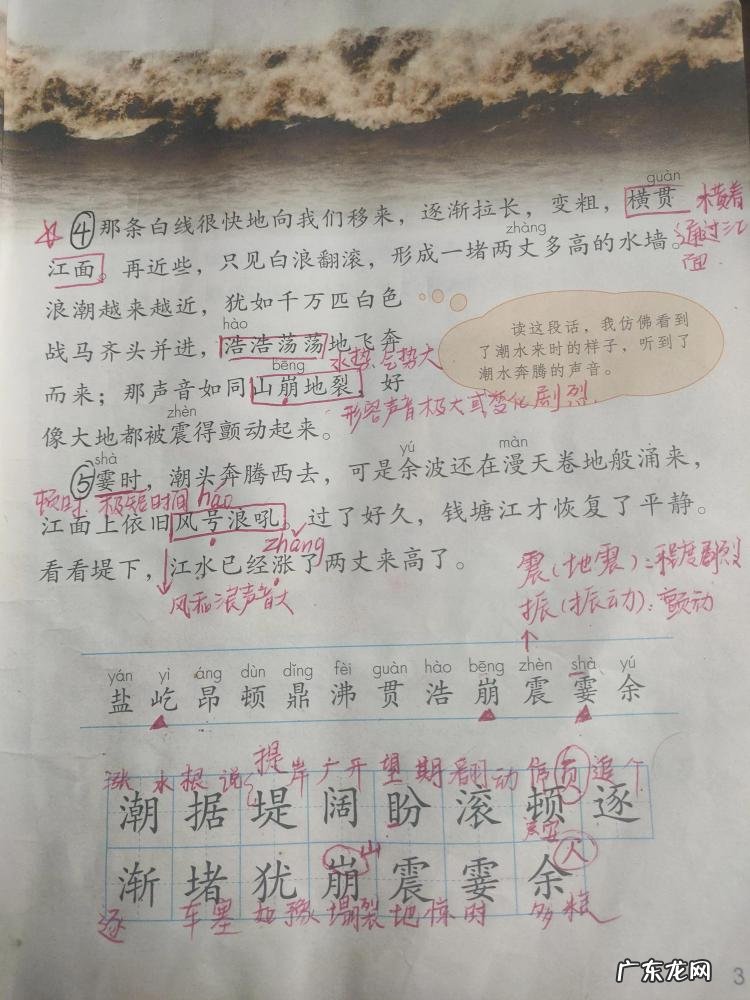 guàn
④那条白线很快地向我们移来，逐渐拉长，变粗，横贯 横着
zhàng
江面。再近些，只见白浪翻滚，形成一堵两丈多高的水墙。 通过江面
浪潮越来越近，犹如千万匹白色
hào
战马齐头并进，浩浩荡荡地飞奔
水势 气势大
bēng
而来；那声音如同山崩地裂，好
形容声音极大或变化剧烈.
zhèn
像大地都被震得颤动起来。
读这段话，我仿佛看到
了潮水来时的样子，听到了
潮水奔腾的声音。
shà yú màn
⑤霎时，潮头奔腾西去，可是余波还在漫天卷地般涌来，
顿时 极短时间 háo
江面上依旧风号浪吼。过了好久，钱塘江才恢复了平静。
zhǎng
看看堤下，江水已经涨了两丈来高了。
风和浪声音大
震（地震）：程度剧烈
振（振动）：颤动
yán yì áng dùn dǐng fèi guàn hào bēng zhèn shà yú
盐 屹 昂 顿 鼎 沸 贯 浩 崩 震 霎 余
涨 水 根 说 提 岸 广 开 望 期 翻 动 停 页 追 个
潮 据 堤 阔 盼 滚 顿 逐
山 人
渐 堵 犹 崩 震 霎 余
逐 车 塞 如 豫 塌 裂 地 惊 时 多 粮
广东龙网
3